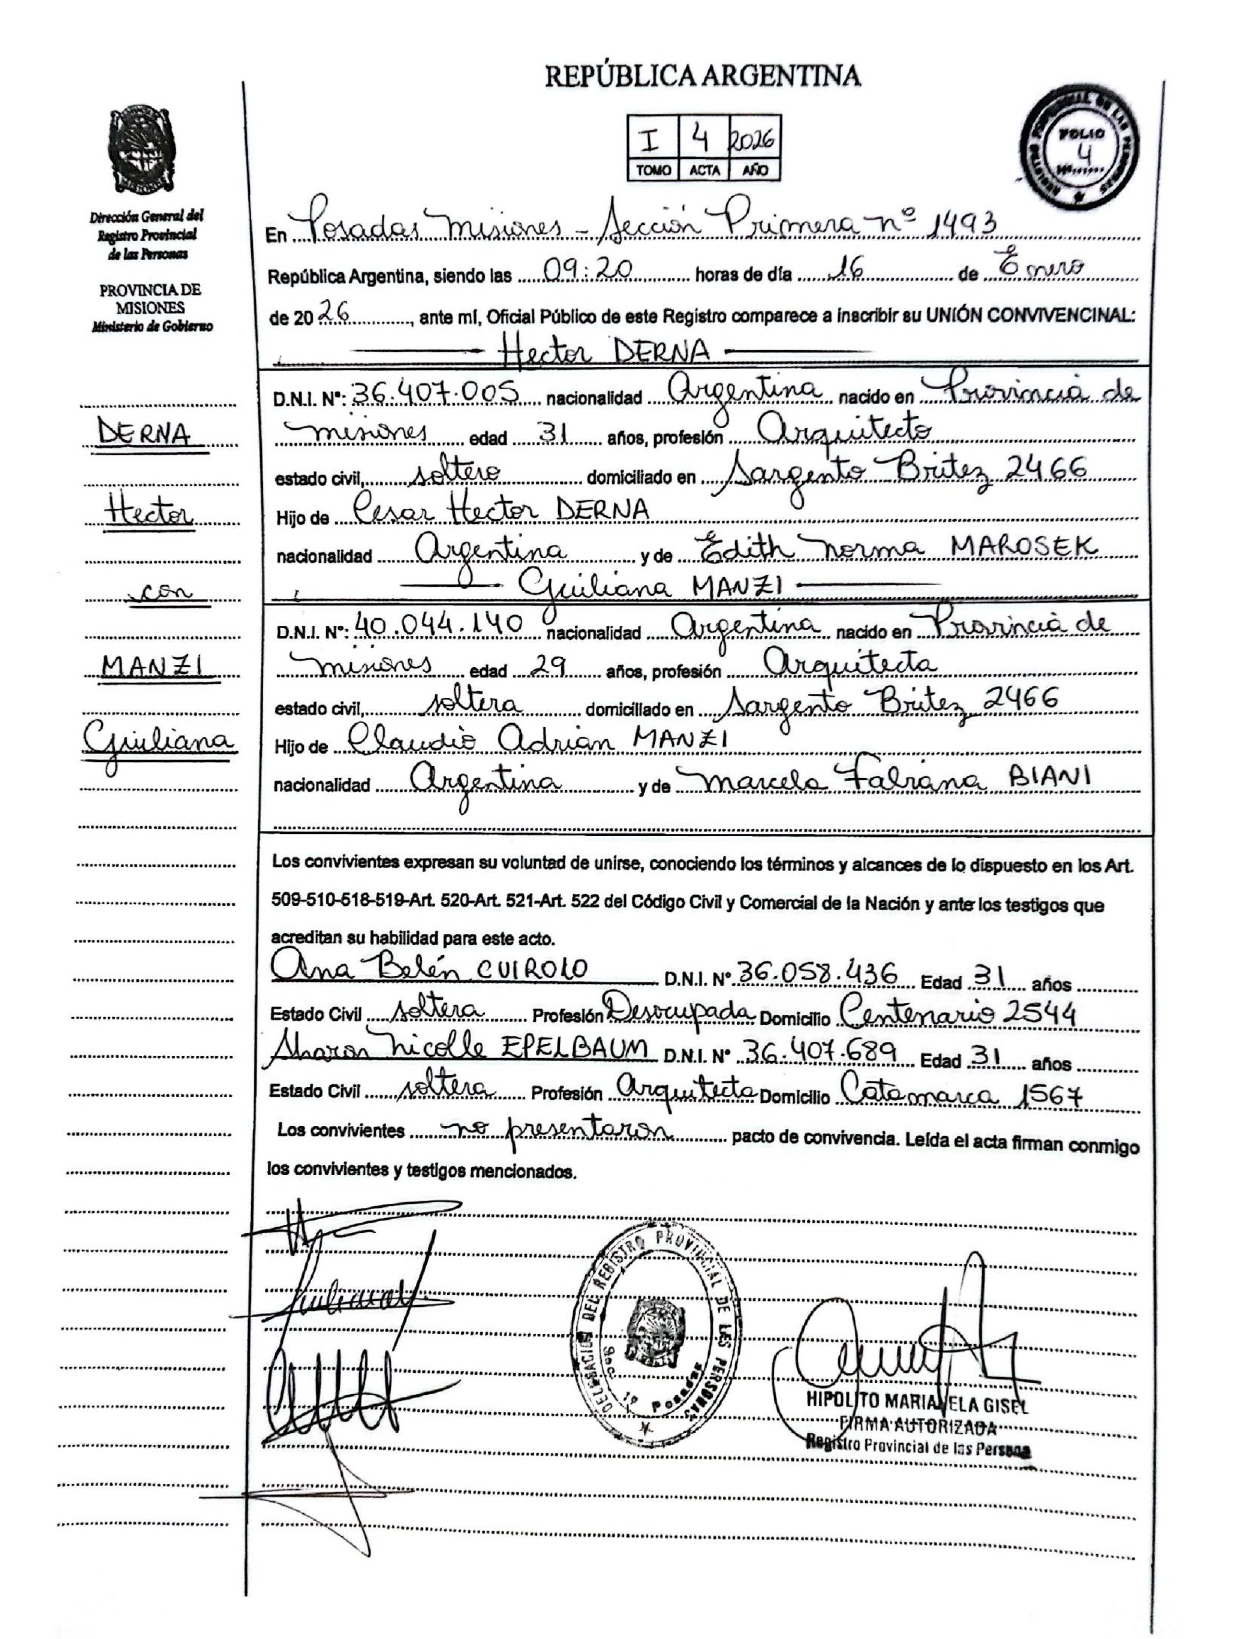 REPÚBLICA ARGENTINA
I 4 2026
TOMO ACTA AÑO
FOLIO
4
Dirección General del
Registro Provincial
de las Personas
PROVINCIA DE
MISIONES
Ministerio de Gobierno
En Posadas Misiones - Sección Primera nº 1493
República Argentina, siendo las 09:20 horas de día 16 de Enero
de 2026, ante mí, Oficial Público de este Registro comparece a inscribir su UNIÓN CONVIVENCINAL:
Hector DERNA
D.N.I. Nº: 36.407.005 nacionalidad Argentina nacido en Provincia de
Misiones edad 31 años, profesión Arquitecto
estado civil, soltero domiciliado en Sargento Britez 2466
Hijo de Cesar Hector DERNA
nacionalidad Argentina y de Edith Norma MAROSEK
Giuliana MANZI
D.N.I. Nº: 40.044.140 nacionalidad Argentina nacido en Provincia de
Misiones edad 29 años, profesión Arquitecta
estado civil, soltera domiciliado en Sargento Britez 2466
Hijo de Claudio Adrian MANZI
nacionalidad Argentina y de Marcela Fabiana BIANI
DERNA
Hector
con
MANZI
Giuliana
Los convivientes expresan su voluntad de unirse, conociendo los términos y alcances de lo dispuesto en los Art.
509-510-518-519-Art. 520-Art. 521-Art. 522 del Código Civil y Comercial de la Nación y ante los testigos que
acreditan su habilidad para este acto.
Ana Belén CUIROLO D.N.I. Nº 36.058.436 Edad 31 años
Estado Civil soltera Profesión Desocupada Domicilio Centenario 2544
Sharon Nicolle EPELBAUM D.N.I. Nº 36.407.689 Edad 31 años
Estado Civil soltera Profesión Arquitecta Domicilio Catamarca 1567
Los convivientes no presentaron pacto de convivencia. Leída el acta firman conmigo
los convivientes y testigos mencionados.
DELEGACIÓN DEL REGISTRO PROVINCIAL DE LAS PERSONAS
Posadas
HIPOLITO MARIANELA GISEL
FIRMA AUTORIZADA
Registro Provincial de las Persona